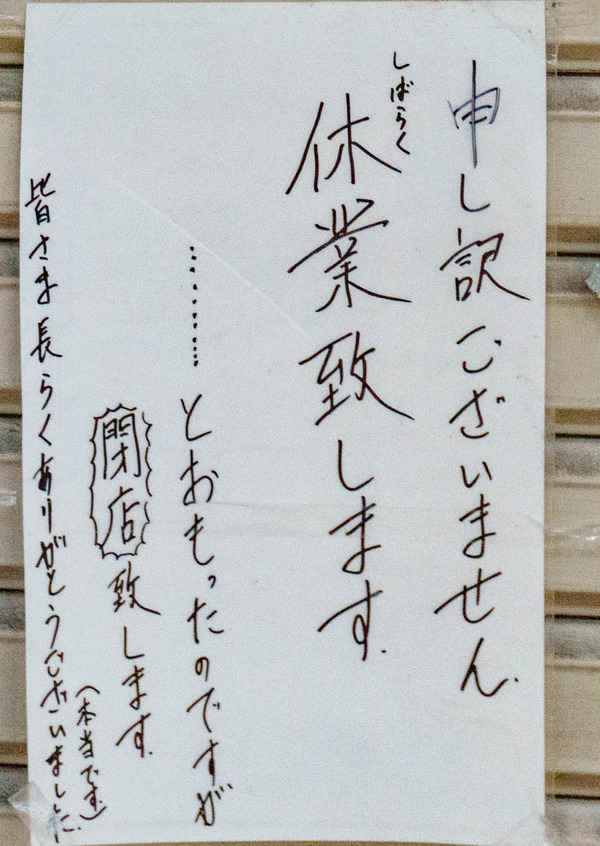 申し訳ございません.
しばらく
休業致します.
………とおもったのですが
閉店致します.
(本当です.)
皆さま長らくありがとうございました.